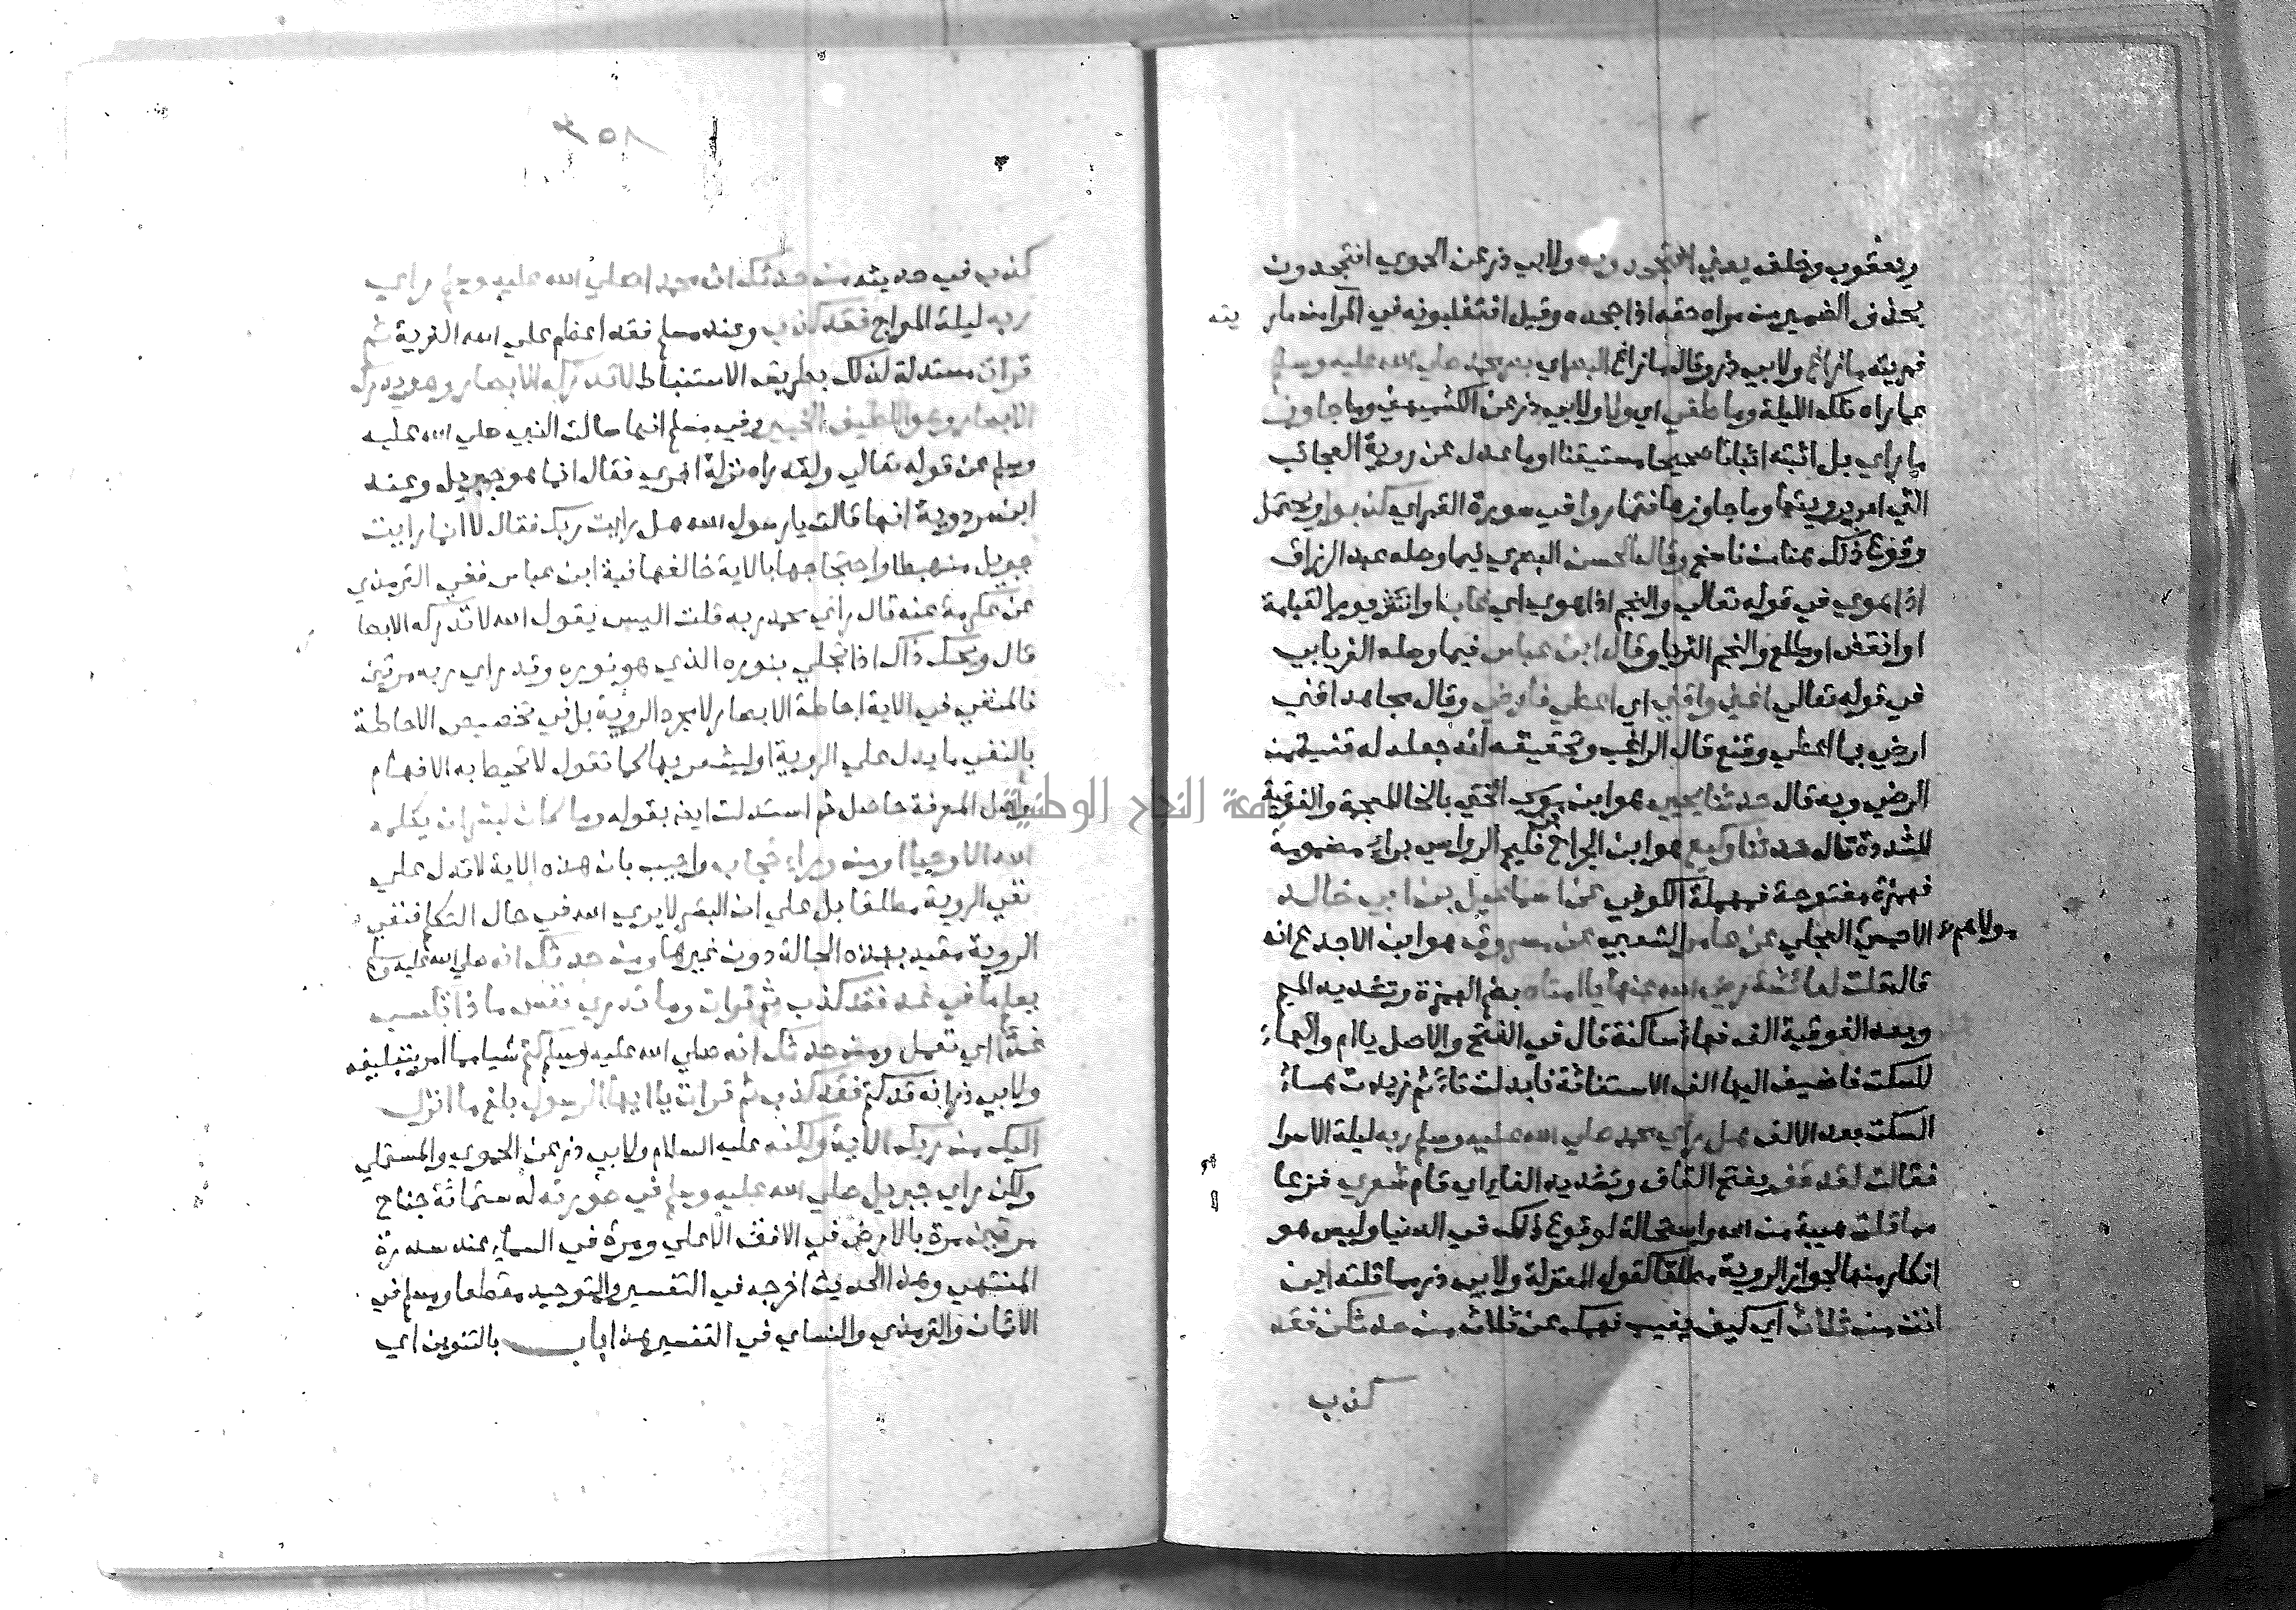 ويعقوب وخلف يعني افتجحدونه ولابي ذر عن الحموي افتجحدون
بحذف الضمير من مراه حقه اذا جحده وقيل افتغلبونه في المرا من مار يته
فمريته ما زاغ ولابي ذر وقال ما زاغ البصراي بصر محمد صلي الله عليه وسلم
عما راه تلك الليلة وما طغي اي ولا ولابي ذر عن الكشميهني وما جاوز
ما راي بل اثبته اثباتا صحيحا مستيقنا او ما عدل عن روية العجائب
التي امر برويتها وما جاوزها فتماروا في سورة القمراي كذبوا ويحتمل
وقوع ذلك من ناسخ وقال الحسن البصري فيما وصله عبد الرزاق
اذا هوي في قوله تعالي والنجم اذا هوي اي غاب اوانتثر يوم القيامة
اوانقض او طلع والنجم الثريا وقال ابن عباس فيما وصله الفريابي
في قوله تعالي اغني واقني اي اعطي فارضي وقال مجاهد اقني
ارضي بما اعطي وقنع قال الراغب وتحقيقه انه جعل له قنية من
الرضي وبه قال حدثنا يحيي هو ابن موسي الختي بالخا المعجمة والفوقية
المشددة قال حدثنا وكيع هو ابن الجراح بن مليح الرواسي براء مضمومة
فهمزة مفتوحة فمهملة الكوفي عن اسماعيل بن ابي خالد
الاحمسي مولاهم العجلي عن عامر الشعبي عن مسروق هو ابن الاجدع انه
قال قلت لعائشة رضي الله عنها يا امتاه بضم الهمزة وتشديد الميم
وبعد الفوقية الف فهاء ساكنة قال في الفتح والاصل يا ام والهاء
للسكت فاضيف اليها الف الاستغاثة فابدلت تاء ثم زيدت هاء
السكت بعد الالف هل راي محمد صلي الله عليه وسلم ربه ليلة الاسرا
فقالت لقد قف بفتح القاف وتشديد الفا اي قام شعري فزعا
مما قلت هيبة من الله واستحالة لوقوع ذلك في الدنيا وليس هو
انكار منها لجواز الروية مطلقا كقول المعتزلة ولابي ذر مما قلته اين
انت من ثلاث اي كيف يغيب فهمك عن ثلاث من حدثكن فقد
كذب
١٥٣
كذب في حديثه من حدثك ان محمدا صلي الله عليه وسلم راي
ربه ليلة المعراج فقد كذب وعند مسلم فقد اعظم علي الله الفرية ثم
قرات مستدلة لذلك بطريق الاستنباط لا تدركه الابصار وهو يدرك
الابصار وهو اللطيف الخبير وفي مسلم انها سالت النبي صلي الله عليه
وسلم عن قوله تعالي ولقد راه نزلة اخري فقال انما هو جبريل وعند
ابن مردوية انها قالت يا رسول الله هل رايت ربك فقال لا انما رايت
جبريل منهبطا واحتجاجها بالاية خالفها فيه ابن عباس ففي الترمذي
عن عكرمة عنه قال راي محمد ربه قلت اليس يقول الله لا تدركه الابصا
قال ويحك ذاك اذا تجلي بنوره الذي هو نوره وقد راي ربه مرتين
فالمنفي في الاية احاطة الابصار لا مجرد الروية بل في تخصيص الاحاطة
بالنفي ما يدل علي الروية او يشعر بها كما تقول لا تحيط به الافهام
واصل المعرفة حاصل ثم استدلت ايضا بقوله وما كان لبشر ان يكلمه
الله الا وحيا او من وراء حجاب واجيب بان هذه الاية لا تدل علي
نفي الروية مطلقا بل علي ان البشر لا يري الله في حال التكلم فنفي
الروية مقيد بهذه الحالة دون غيرها ومن حدثك انه صلي الله عليه وسلم
يعلم ما في غد فقد كذب ثم قرات وما تدري نفس ماذا تكسب
غدا اي تعمل ومن حدثك انه صلي الله عليه وسلم كتم شيا مما امر بتبليغه
ولابي ذر انه قد كتم فقد كذب ثم قرات يا ايها الرسول بلغ ما انزل
اليك من ربك الاية ولكنه عليه السلام ولابي ذر عن الحموي والمستملي
ولكن راي جبريل صلي الله عليه وسلم في صورته له ستمائة جناح
مرتين مرة بالارض في الافق الاعلي ومرة في السماء عند سدرة
المنتهي وهذا الحديث اخرجه في التفسير والتوحيد مقطعا ومسلم في
الايمان والترمذي والنساي في التفسير هذا باب بالتنوين اي
جامعة النجاح الوطنية